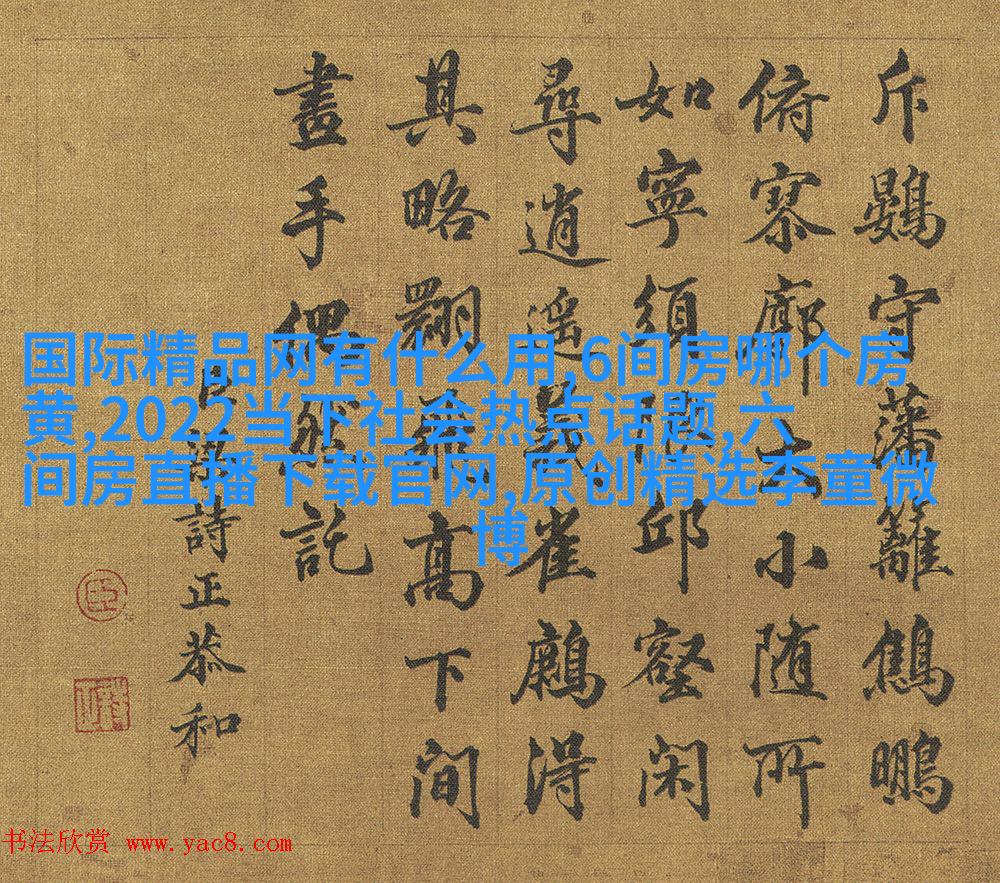 斥鷃守藩籬鷦鵬
俯寥廓小随所
如寧須邱壑閑
尋逍遥義雀得
其略翾飛高下間
畫手偶然託
臣梁詩正恭和
臣
国际精品网有什么用,6间房哪个房
黄,2022当下社会热点话题,六
间房直播下载官网,原创精选李童微
博
书法欣赏 www.yac8.com